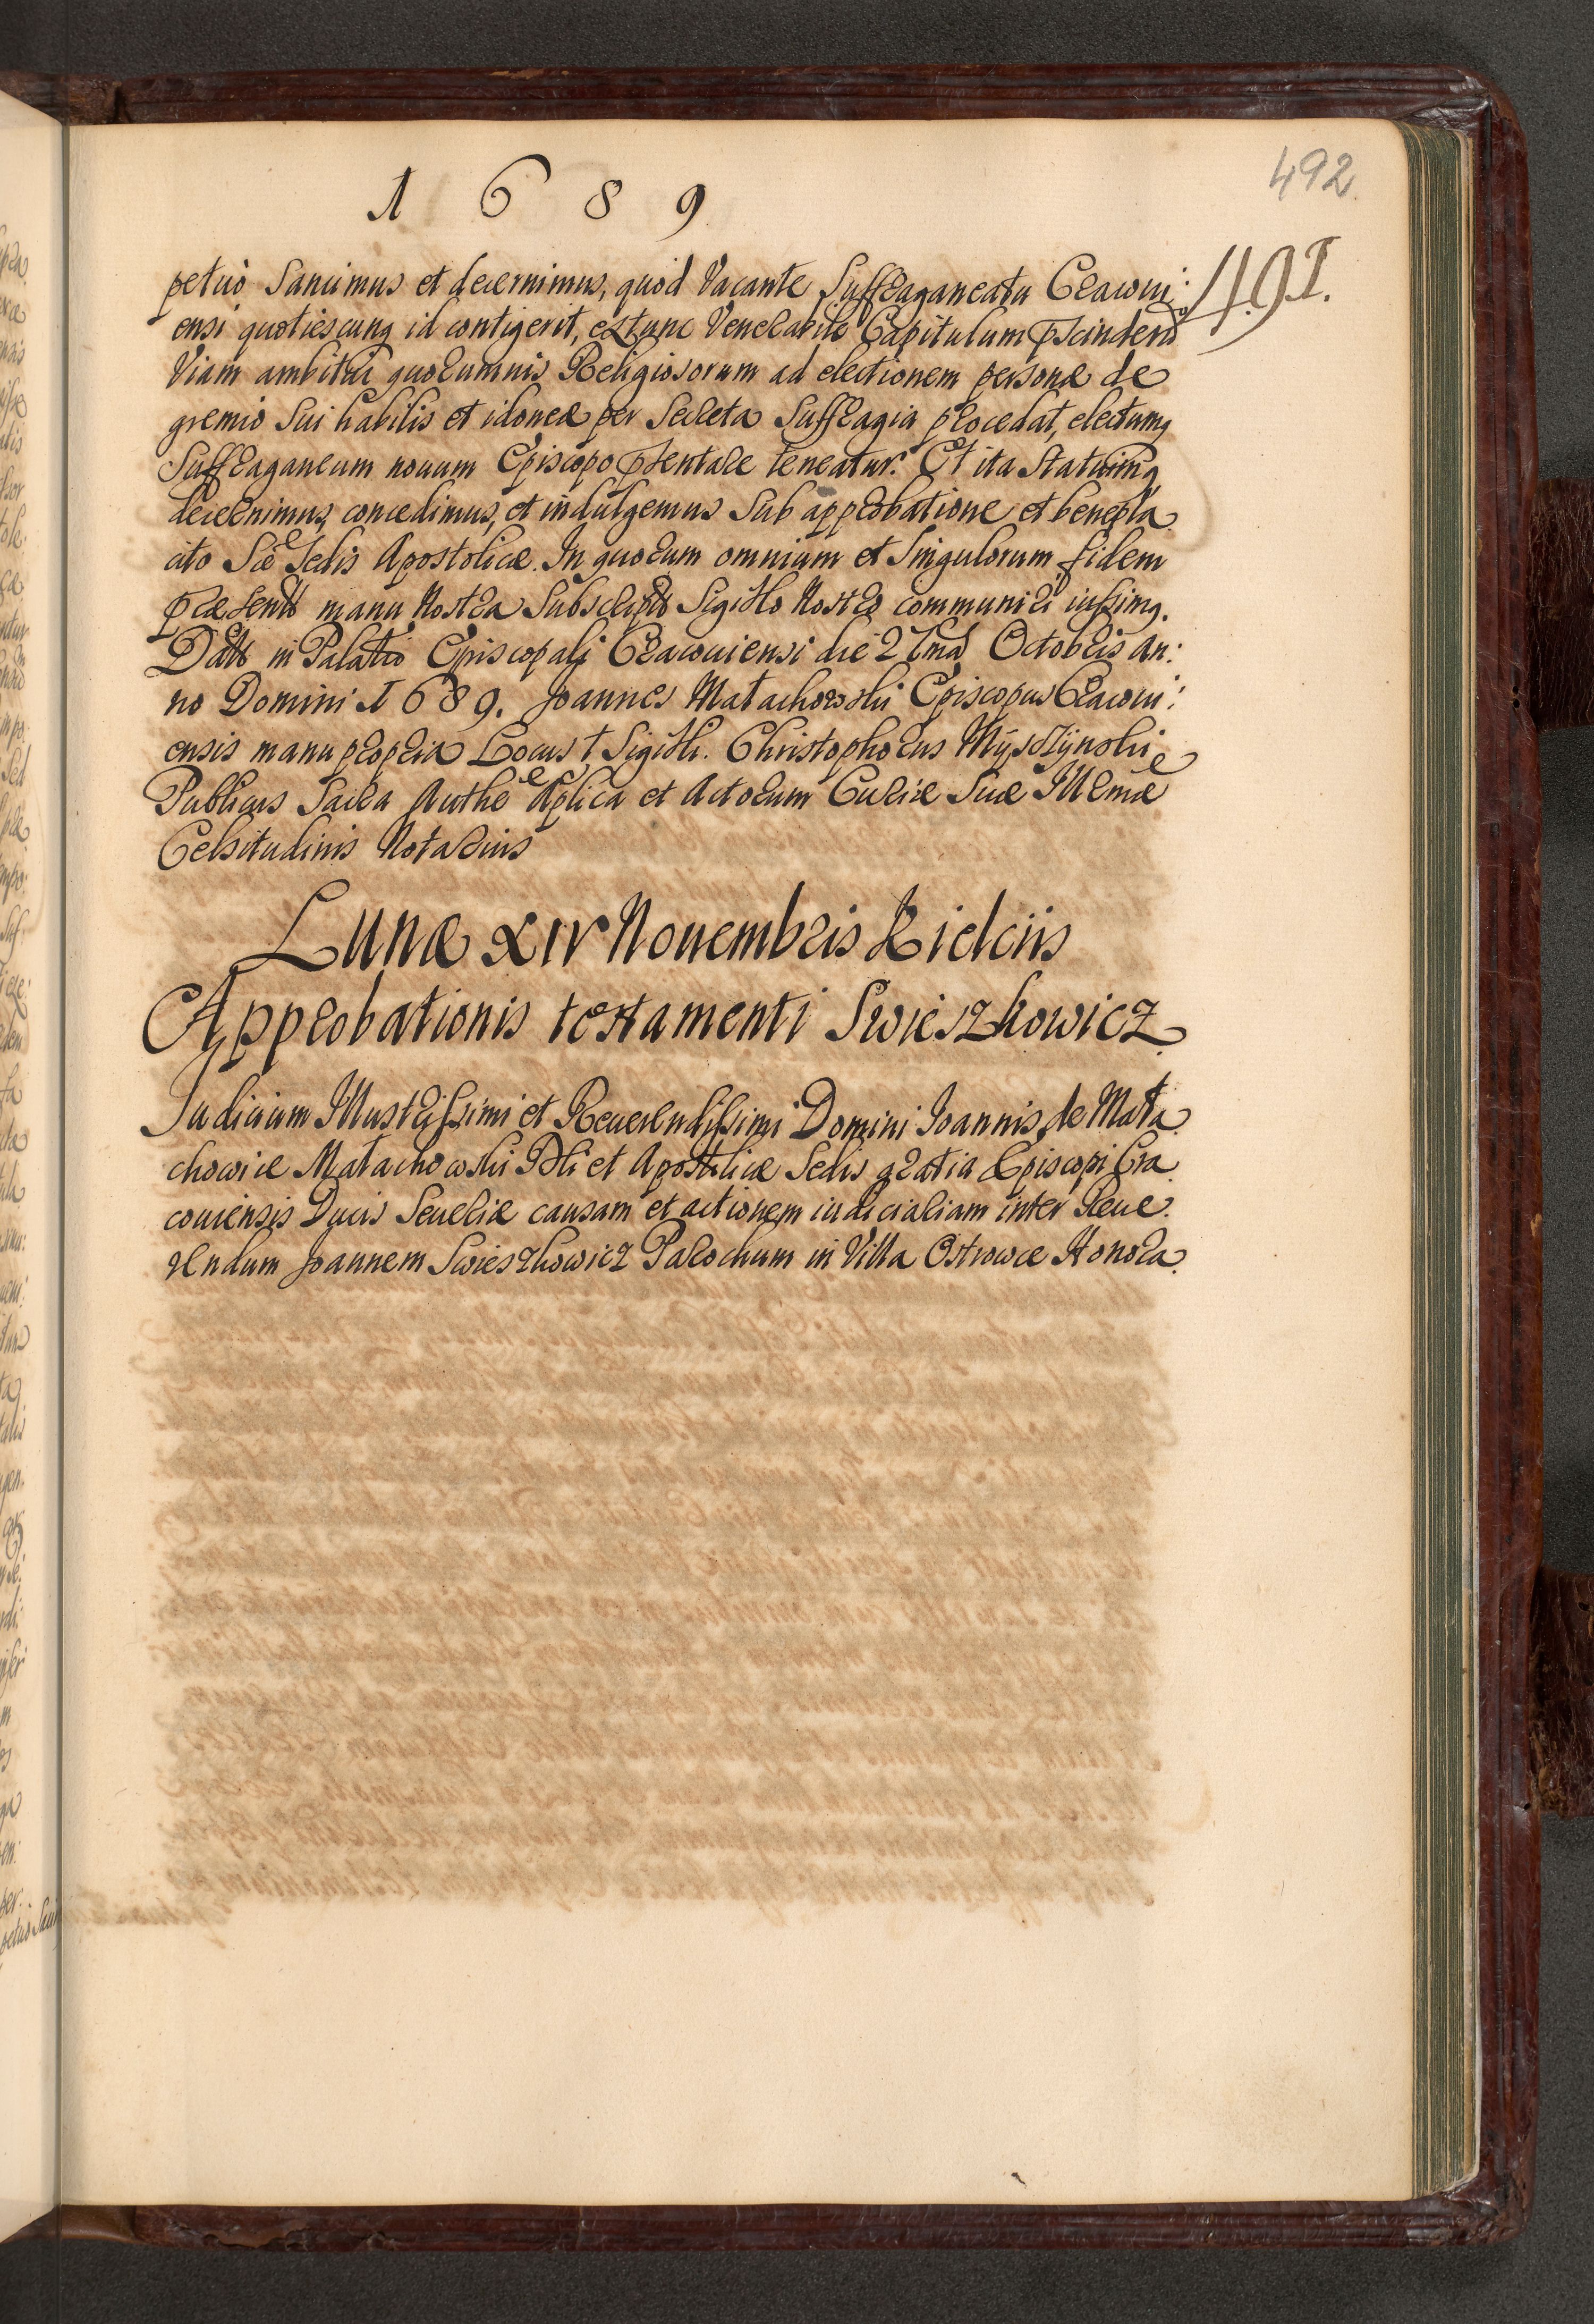 1689
492
491.
petuo Sancimus et decernimus, quod Vacante Suffraganeatu Cracoui:
ensi quotiescunq id contigerit, extunc Venerabile Capitulum pscindendo
Viam ambitui quorumuis Religiosorum ad electionem personæ de
gremio sui habilis et idoneæ per Secreta Suffragia procedat, electumq
Suffraganeum nouum Episcopo pſentare teneatur. Et ita Statuimq
decernimus, concedimus, et indulgemus Sub approbatione et benepla
cito Sæ Sedis Apostolicæ. In quorum omnium et Singulorum fidem
præsentes manu Nostra Subscriptas Sigillo Nostro communiri iussimq.
Datt in Palatio Episcopali Cracouiensi die 27ma Octobris An:
no Domini 1689. Joannes Małachowski Episcopus Cracoui:
ensis manu propria Locus † Sigilli. Christophorus Myszynski
Publicus Sacra Authe Aplica et Actorum Curiæ Suæ Illmæ
Celsitudinis Notarius
Lunæ XIV Nouembris Kielciis
Approbationis testamenti Swieszkowicz
Judicium Illustrissimi et Reuerendissimi Domini Joannis de Mała
chowice Małachowski Dei et Apostolicæ Sedis gratia Episcopi Cra
couiensis Ducis Seueriæ causam et actionem iudicialiam inter Reue
rendum Joannem Swieszkowicz Parochum in Villa Ostrowce Honora